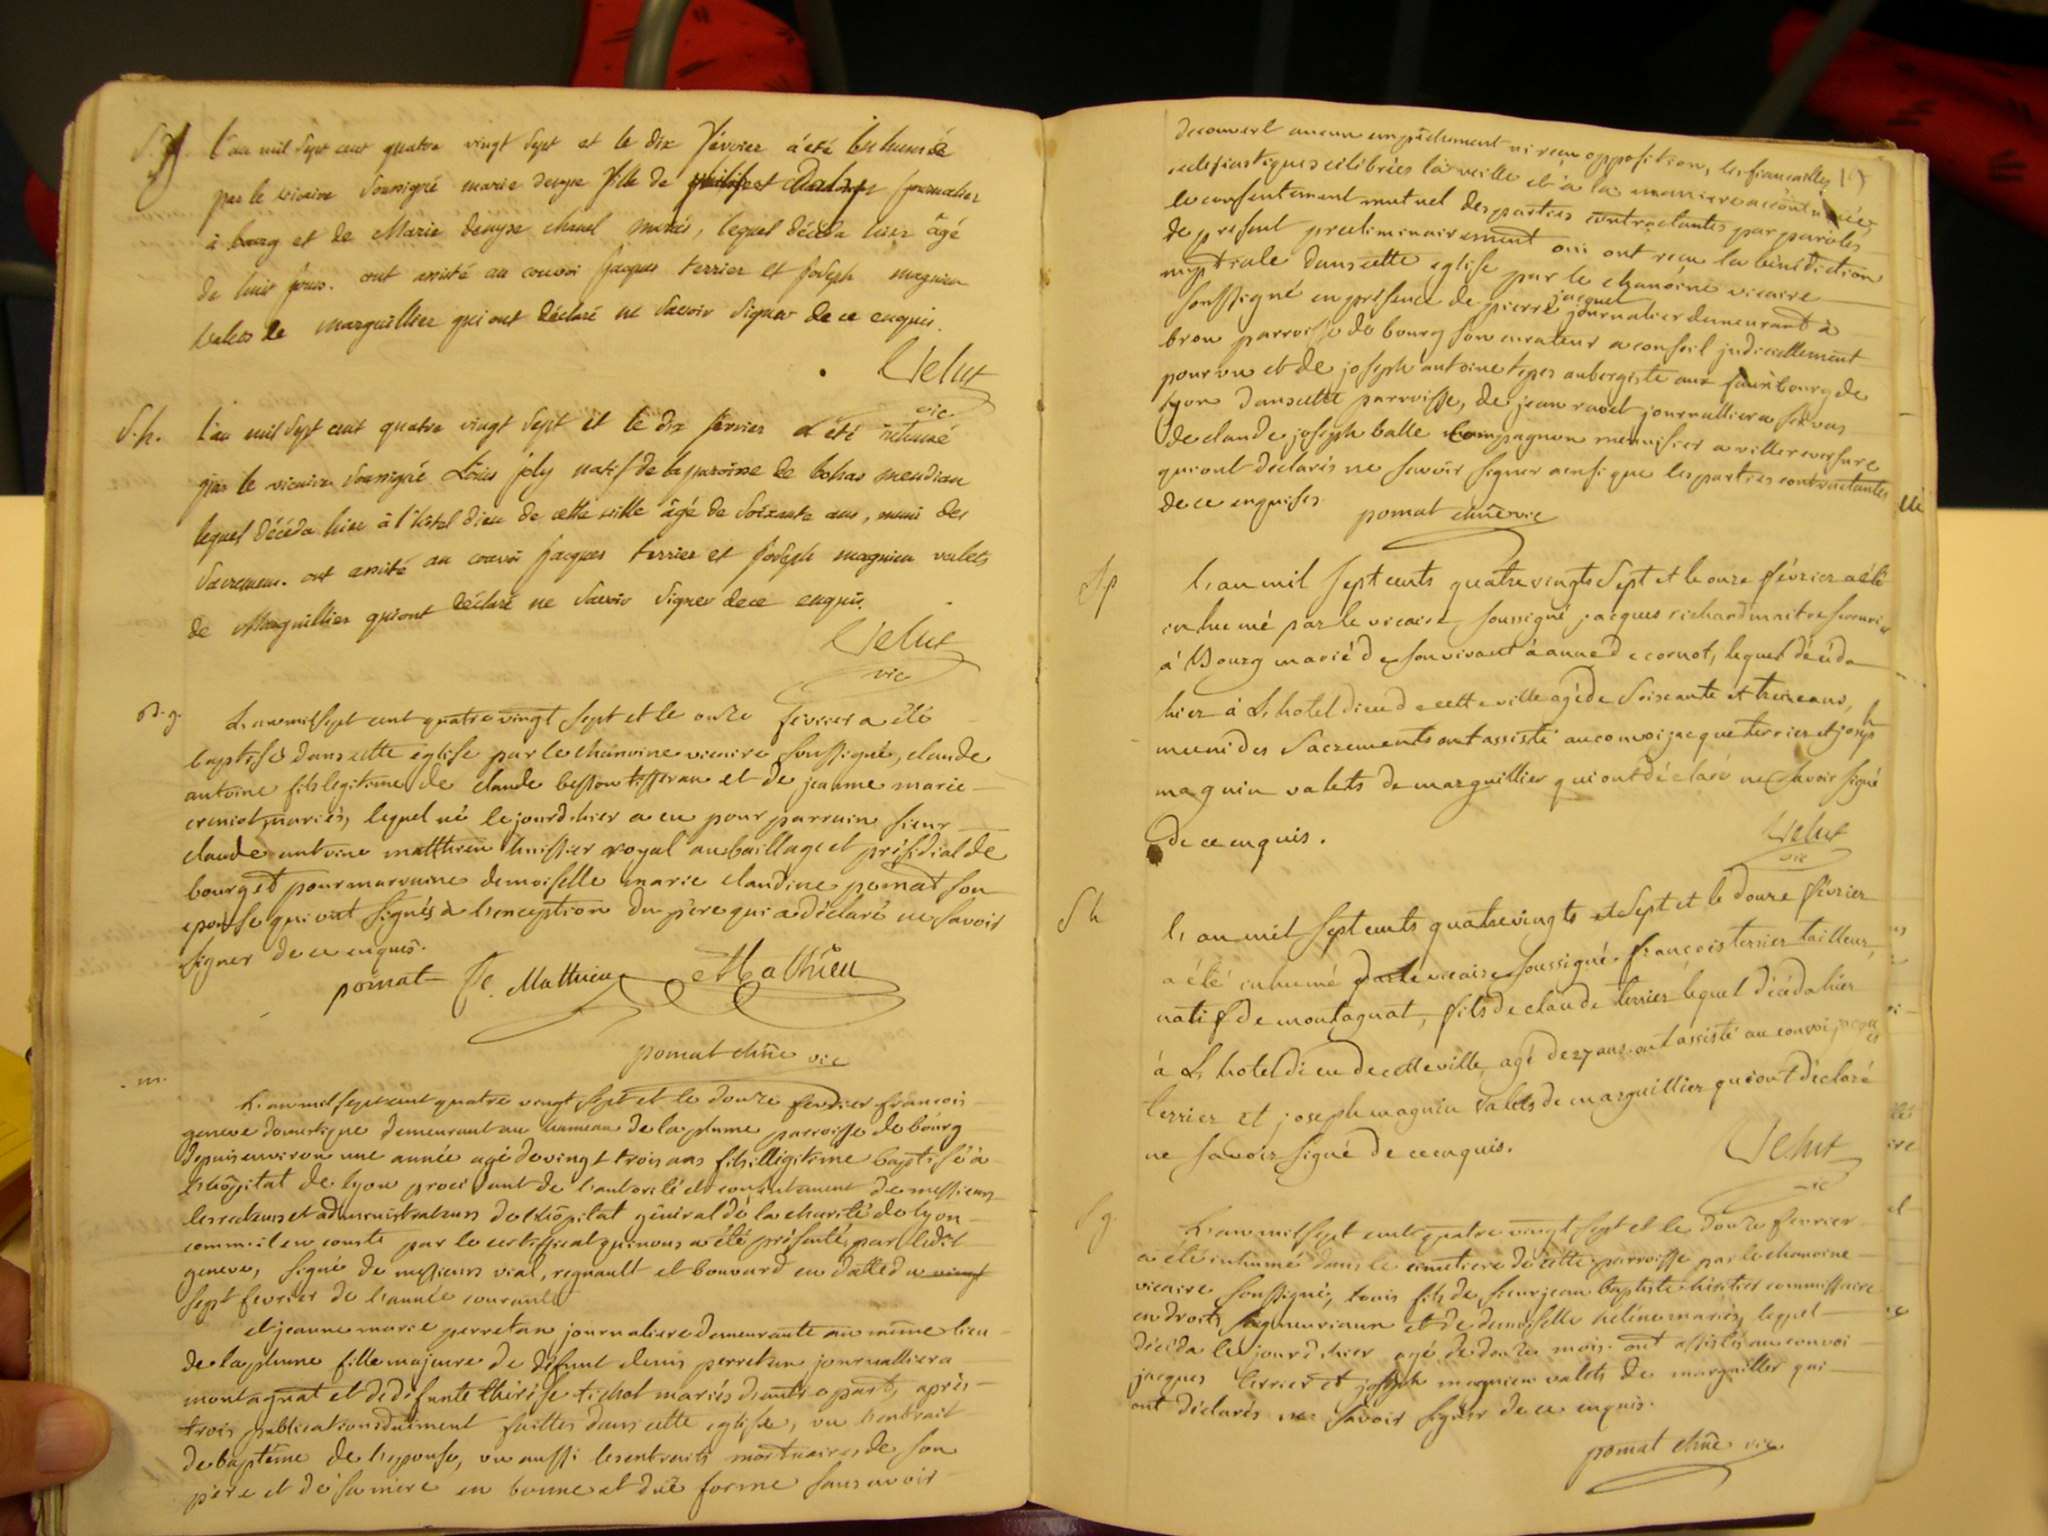 L'an mil sept cent quatre vingt sept et le dix février a été inhumé
par le vicaire soussigné marie denyse fille de journalier
à bourg et de Marie denyse chanel mariés, lequel décéda hier âgé
de huit jours. ont assisté au convoi jacques terrier et joseph magnien
valets de marguillier qui ont déclaré ne savoir signer de ce enquis.
Velut
vic
S.h.
L'an mil sept cent quatre vingt sept et le dix fevrier a été inhumé
par le vicaire soussigné Louis joly natif de la paroisse de bohas mendian
lequel décéda hier à l'hotel dieu de cette ville âgé de soixante ans, muni des
sacremens. ont assisté au convoi jacques terrier et joseph magnien valets
de Marguillier qui ont déclaré ne savoir signer de ce enquis.
Velut
vic
B.g.
L'an mil sept cent quatre vingt sept et le onze fevrier a été
baptisé dans cette eglise par le chanoine vicaire soussigné, claude
antoine fils legitime de claude besson tisseran et de jeanne marie
mariés, lequel né le jourd'hier a eu pour parrain sieur
claude antoine matthieu huissier royal au baillage et présidial de
bourg et pour marraine demoiselle marie claudine pomat son
epouse qui ont signés à l'exception du père qui a déclaré ne savoir
signer de ce enquis.
pomat fe. Matthieu Mathieu
pomat chne vic
m.
L'an mil sept cent quatre vingt sept et le douze fevrier françois
geneve domestique demeurant au hameau de la plume parroisse de bourg
depuis environ une année agé de vingt trois ans fils illégitime baptisé à
L'hôpital de lyon procédant de l'autorité et consentement de messieurs
les recteurs et administrateurs de l'hôpital général de la charité de lyon
comme il en conste par le certifficat qui nous a été présenté par ledit
geneve, signé de messieurs vial, regnault et bouvard en datte du vingt
sept fevrier de l'année courante
et jeanne marie perretan journaliere demeurante au même lieu
de la plume fille majeure de défunt denis perretan journallier a
montagnat et de défunte thérèse tichot mariés d'autre part, après
trois publications duement faittes dans cette eglise, vu l'extrait
de baptême de l'epouse, vu aussi les extraits mortuaires de son
père et de sa mère en bonne et due forme sans avoir
decouvert aucun empêchement ni reçu opposition, les fiancailles
ecclesiastiques célébrées la veille et à la maniere accoutumée
le consentement mutuel des parties contractantes par paroles
de present preeliminairement oui ont reçu la bénédiction
nuptiale dans cette eglise par le chanoine vicaire
soussigné en présence de pierre jacquet journalier demeurant à
brou parroisse de bourg son curateur a conseil judiciellement
pourvu et de joseph antoine tepes aubergiste aux fauxbourg de
lyon dans cette parroisse, de jean ravet journallier a servas
de claude joseph balle compagnon menuisier a villereversure
qui ont déclarés ne savoir signer ainsi que les parties contractantes
de ce enquises
pomat chne vic
Sp
L'an mil sept cents quatre vingts sept et le onze février a été
inhumé par le vicaire soussigné jacques richard maitre serrurier
à Bourg marié de son vivant à anne decornot, lequel décéda
hier à L'hotel dieu de cette ville agé de soixante et treize ans,
muni des sacrements ont assisté au convoi jacque terrier et joseph
magnin valets de marguillier qui ont déclaré ne savoir signé
de ce enquis.
Velut
vic
Sh
L'an mil sept cents quatre vingts et sept et le douze février
a été inhumé par le vicaire soussigné françois terrier tailleur,
natif de montagnat, fils de claude terrier lequel décéda hier
à L'hotel dieu de cette ville, agé de 27 ans. ont assisté au convoi jacques
terrier et joseph magnin valets de marguillier qui ont déclaré
ne savoir signé de ce enquis.
Velut
vic
Sg.
L'an mil sept cent quatre vingt sept et le douze fevrier
a été inhumé dans le cimetiere de cette parroisse par le chanoine
vicaire soussigné, louis fils de sieur jean baptiste héritier commissaire
en droits seigneuriaux et de demoiselle heline mariés, lequel
décéda le jourd'hier agé de douze mois. ont assistés au convoi
jacques terrier et joseph magnien valets de marguillier qui
ont déclarés ne savoir signer de ce enquis.
pomat chne vic